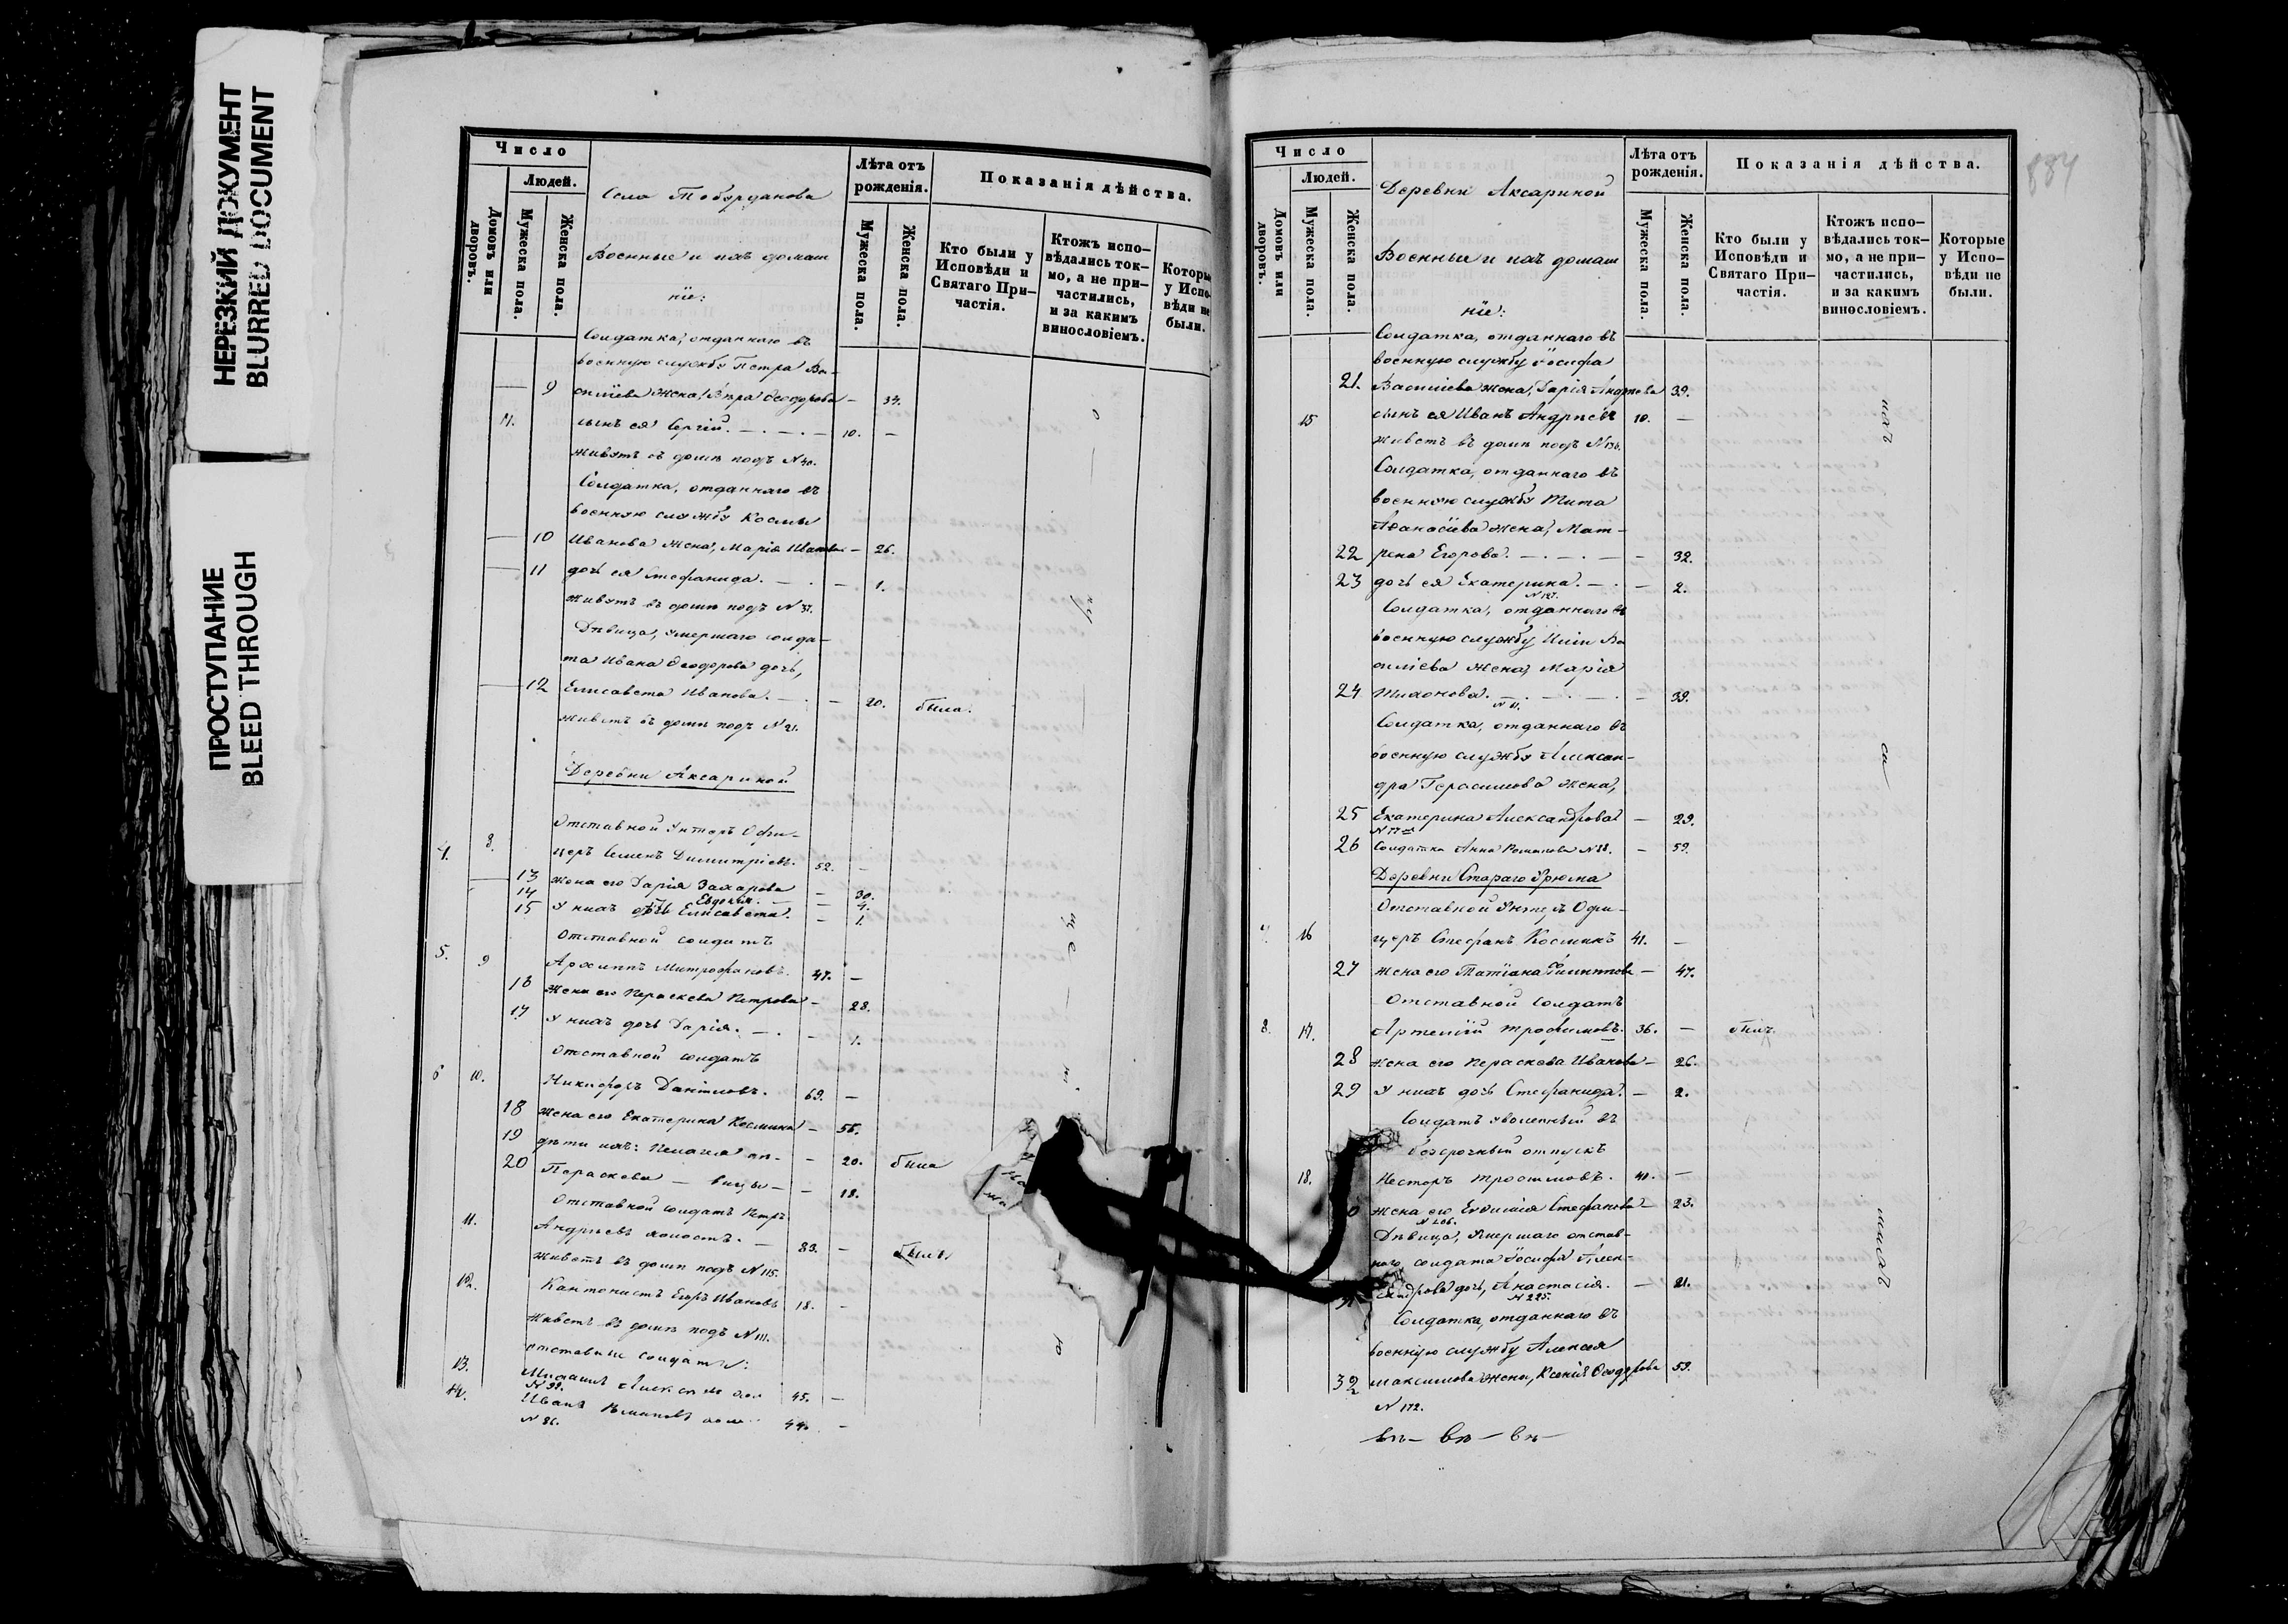 НЕРЕЗКИЙ ДОКУМЕНТ
BLURRED DOCUMENT
ПРОСТУПАНИЕ
BLEED THROUGH
Число
Людей.
Домовъ или дворовъ.
Мужеска пола.
Женска пола.
Села Тобурданова
Военные и ихъ домаш
нїе:
Лѣта отъ рожденія.
Мужеска пола.
Женска пола.
Показанія дѣйства.
Кто были у Исповѣди и Святаго Причастія.
Ктожъ исповѣдались токмо, а не причастились, и за какимъ винословіемъ.
Которые у Исповѣди не были.
Солдатка, отданнаго въ
военную службу Петра Ва-
9 силіева жена, Ѳеодорова — 34.
11. сынъ ея Сергій. 10. —
живутъ въ домѣ подъ N 40.
Солдатка, отданнаго въ
военную службу Космы
10 Иванова жена, Марія Иванова — 26.
11 дочь ея Стефанида. — 1.
живутъ въ домѣ подъ N 37.
Дѣвица, умершаго солда-
та Ивана Ѳеодорова дочь,
12 Елисавета Иванова. — 20. была.
живетъ въ домѣ подъ N 21.
Деревни Аксариной
Отставной Унтеръ Офи-
4. 8. церъ Семенъ Димитріевъ. 52. —
13 жена его Дарія Захарова — 30.
14 Евдокія. — 4.
15 У нихъ дочь Елисавета. — 1.
Отставной солдатъ
5. 9 Архиппъ Митрофановъ. 47. —
16 жена его Параскева Петрова — 28.
17 У нихъ дочь Дарія. — 1.
Отставной солдатъ
6 10. Никифоръ Даніиловъ. 69. —
18 жена его Екатерина Космина — 56.
19 дѣти ихъ: Пелагія — 20. была
20 Параскева — вицы — 18.
Отставной солдатъ Петръ
11. Андреевъ холостъ. — 83. — былъ
живетъ въ домѣ подъ N 115.
12. Кантонистъ Егоръ Ивановъ 18. —
живетъ въ домѣ подъ N 111.
отставные солдаты:
13. Михаилъ 45. —
N 99.
14. Иванъ 44. —
N 86.
884
Число
Людей.
Домовъ или дворовъ.
Мужеска пола.
Женска пола.
Деревни Аксариной
Военные и ихъ домаш
нїе:
Лѣта отъ рожденія.
Мужеска пола.
Женска пола.
Показанія дѣйства.
Кто были у Исповѣди и Святаго Причастія.
Ктожъ исповѣдались токмо, а не причастились, и за какимъ винословіемъ.
Которые у Исповѣди не были.
Солдатка, отданнаго въ
военную службу Іосифа
21. Василіева жена, Дарія Андреева 39.
15 сынъ ея Иванъ Андреевъ 10. —
живетъ въ домѣ подъ N 136.
Солдатка, отданнаго въ
военную службу Тита
Аѳанасіева жена, Мат-
22 рена Егорова. — 32.
23 дочь ея Екатерина. — 2.
N 127.
Солдатка, отданнаго въ
военную службу Иліи Ва
силіева жена, Марія
24 Тихонова. — 39.
Солдатка, отданнаго въ
военную службу Алексан-
дра Герасимова жена,
25 Екатерина Александрова — 29.
26 Солдатка Анна Романова N 88. — 59.
Деревни Стараго Урюма
Отставной Унтеръ Офи-
7. 16 церъ Стефанъ Косминъ 41. —
27 жена его Татіана Филиппова — 47.
Отставной солдатъ
8. 17. Артемій Трофимовъ. 36. —
28 жена его Параскева Иванова — 26.
29 У нихъ дочь Стефанида. — 2.
Солдатъ уволенный въ
безсрочный отпускъ
18. Несторъ 41. —
жена его Евѳимія Стефанова — 23.
N 206.
Дѣвица, Умершаго отстав-
наго солдата Іосифа Алек-
сандрова дочь, Анастасія. — 21.
N 225.
Солдатка, отданнаго въ
военную службу Алексѣя
32 Максимова жена, Ксенія Ѳеодорова 59.
N 172.